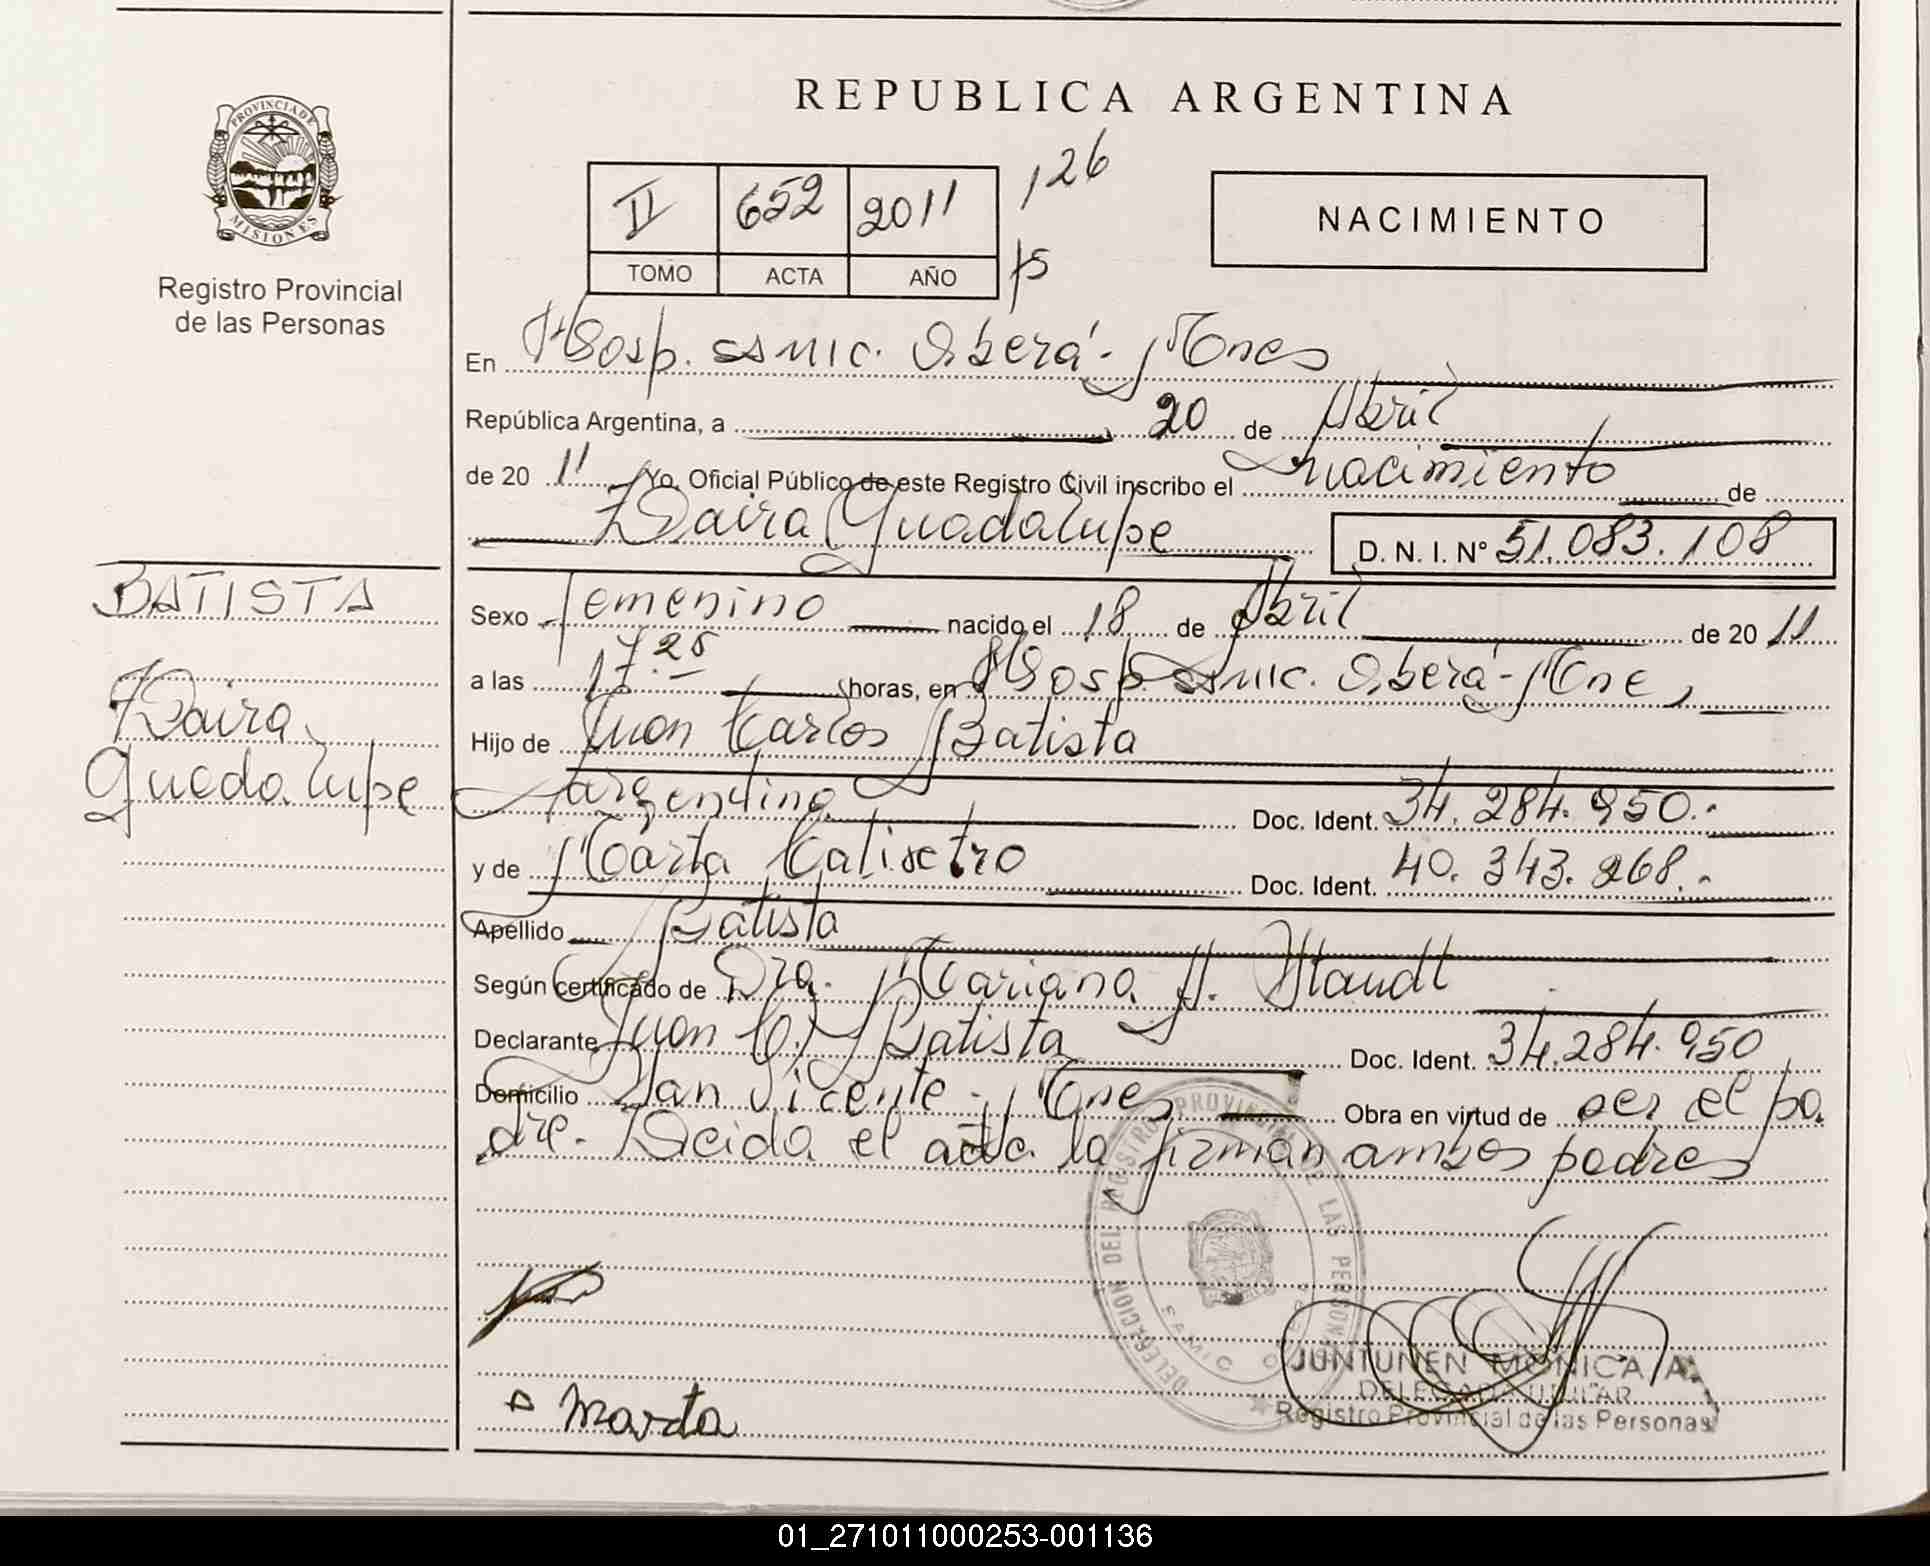 REPUBLICA ARGENTINA
PROVINCIA DE
MISIONES
Registro Provincial
de las Personas
II 652 2011 126
TOMO ACTA AÑO
NACIMIENTO
En Hosp. SAMIC. Oberá - Mnes
República Argentina, a 20 de Abril
de 20 11 Yo, Oficial Público de este Registro Civil inscribo el nacimiento de
Daira Guadalupe D. N. I. Nº 51.083.108
BATISTA
Daira
Guadalupe
Sexo Femenino nacido el 18 de Abril de 20 11
a las 17.25 horas, en Hosp. SAMIC. Oberá - Mnes
Hijo de Juan Carlos Batista
Argentino Doc. Ident. 34.284.950.-
y de Marta Doc. Ident. 40.343.268.-
Apellido Batista
Según certificado de Dra. Mariana A. Staudt
Declarante Juan C. Batista Doc. Ident. 34.284.950
Domicilio San Vicente - Mnes Obra en virtud de ser el pa
dre. Leida el acta la firman ambos padres
DELEGACION DEL REGISTRO PROVINCIAL DE LAS PERSONAS
SAMIC OBERA
JUNTUNEN MONICA A.
DELEGADA TITULAR
Registro Provincial de las Personas
Marta
01_271011000253-001136